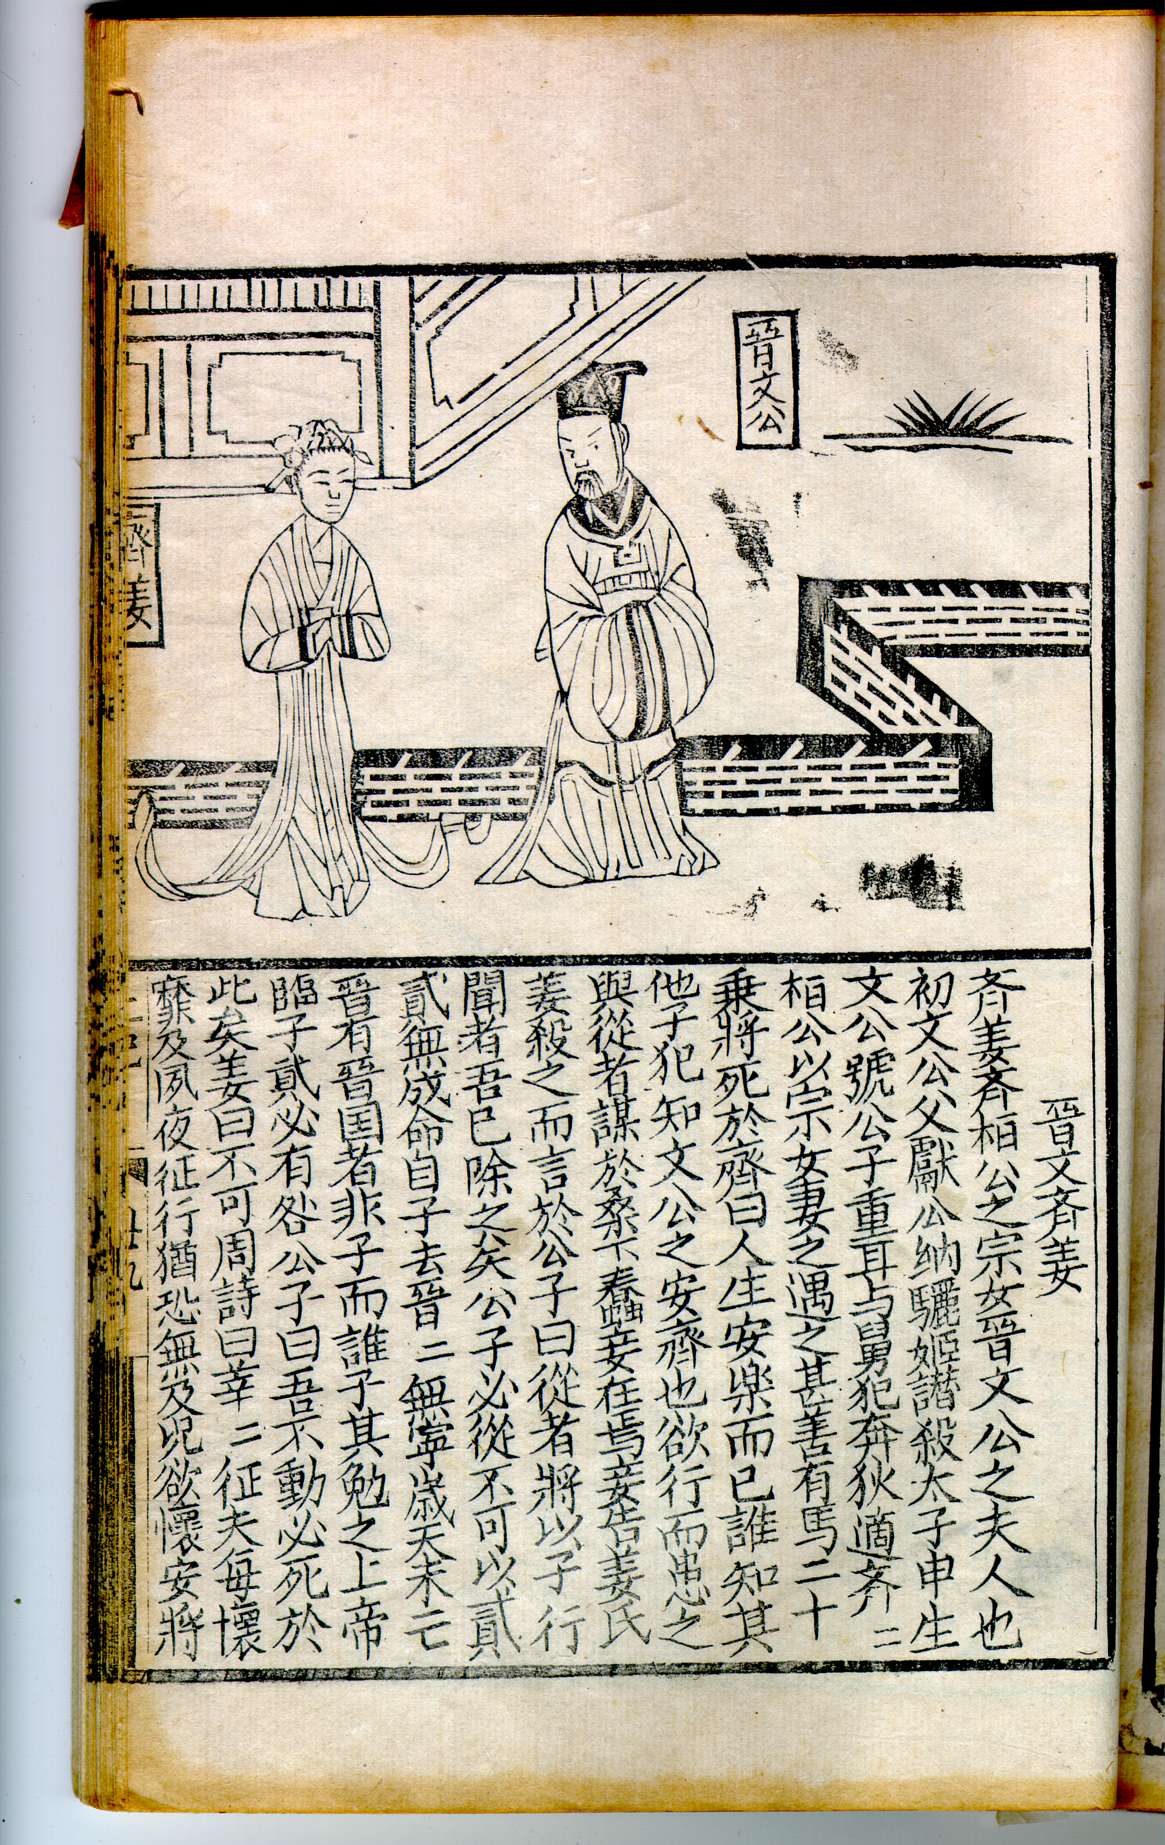 晉文公
齊姜
晉文斉姜
斉姜斉桓公之宗女晉文公之夫人也
初文公父獻公納驪姬譖殺太子申生
文公號公子重耳与舅犯奔狄適斉二
桓公以宗女妻之遇之甚善有馬二十
乗將死於齊曰人生安樂而已誰知其
他子犯知文公之安齊也欲行而患之
與從者謀於桑下蠶妾在焉妾告姜氏
姜殺之而言於公子曰從者將以子行
聞者吾已除之矣公子必從不可以貳
貳無成命自子去晉二無寧歲天未亡
晉有晉国者非子而誰子其勉之上帝
臨子貳必有咎公子曰吾不動必死於
此矣姜曰不可周詩曰莘二征夫每懷
靡及夙夜征行猶恐無及况欲懷安將